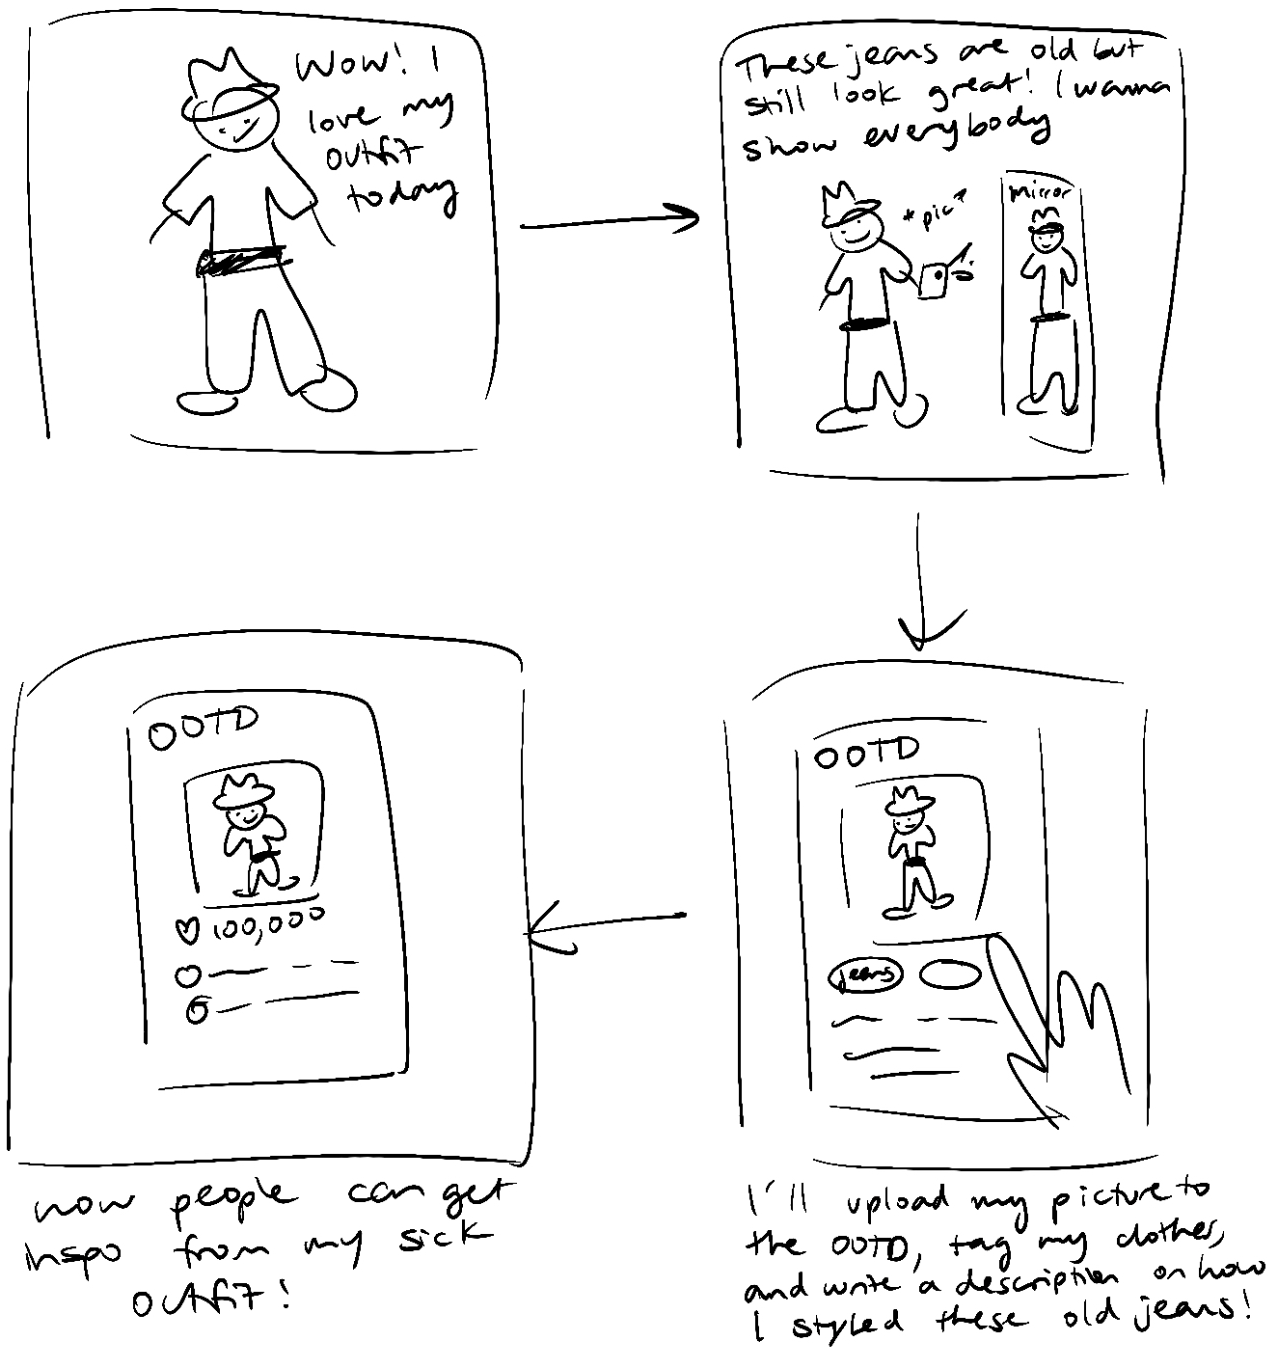 Wow! I
love my
outfit
today
These jeans are old but
still look great! I wanna
show everybody
*pic*
mirror
OOTD
jeans
I'll upload my picture to
the OOTD, tag my clothes,
and write a description on how
I styled these old jeans!
OOTD
100,000
now people can get
inspo from my sick
outfit!